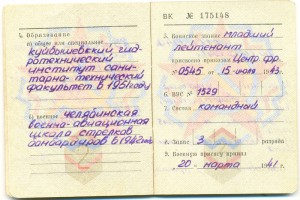 4. Образование
а) общее или специальное
Куйбышевский гид-
ротехнический
институт сани-
тарно-технический
факультет в 1951 году
б) военное Челябинская
военно-авиационная
школа стрелков
бомбардиров в 1942 году
ВК № 175148
5. Воинское звание младший
лейтенант
присвоено приказом Центр. фр.
№ 0545 от 15 июля 1943 г.
6. ВУС № 1529
7. Состав командный
8. Запас 3 разряда
9. Военную присягу принял
20 марта 1941 г.